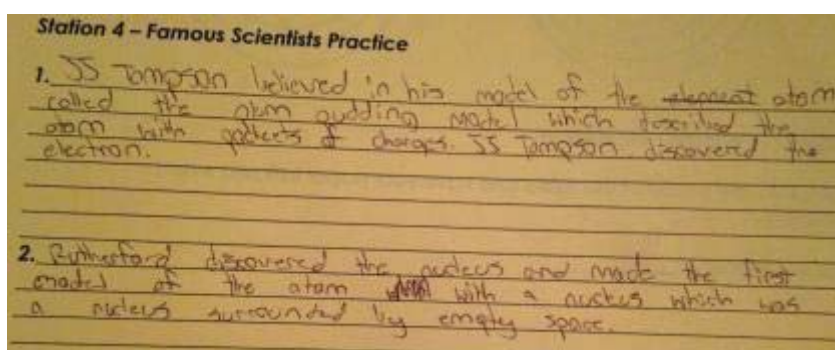 Station 4 – Famous Scientists Practice
1. JJ Tompson believed in his model of the element atom
called the plum pudding model which described the
atom with pockets of charges. JJ Tompson discovered the
electron.
2. Rutherford discovered the nucleus and made the first
model of the atom with a nucleus which was
a nucleus surrounded by empty space.